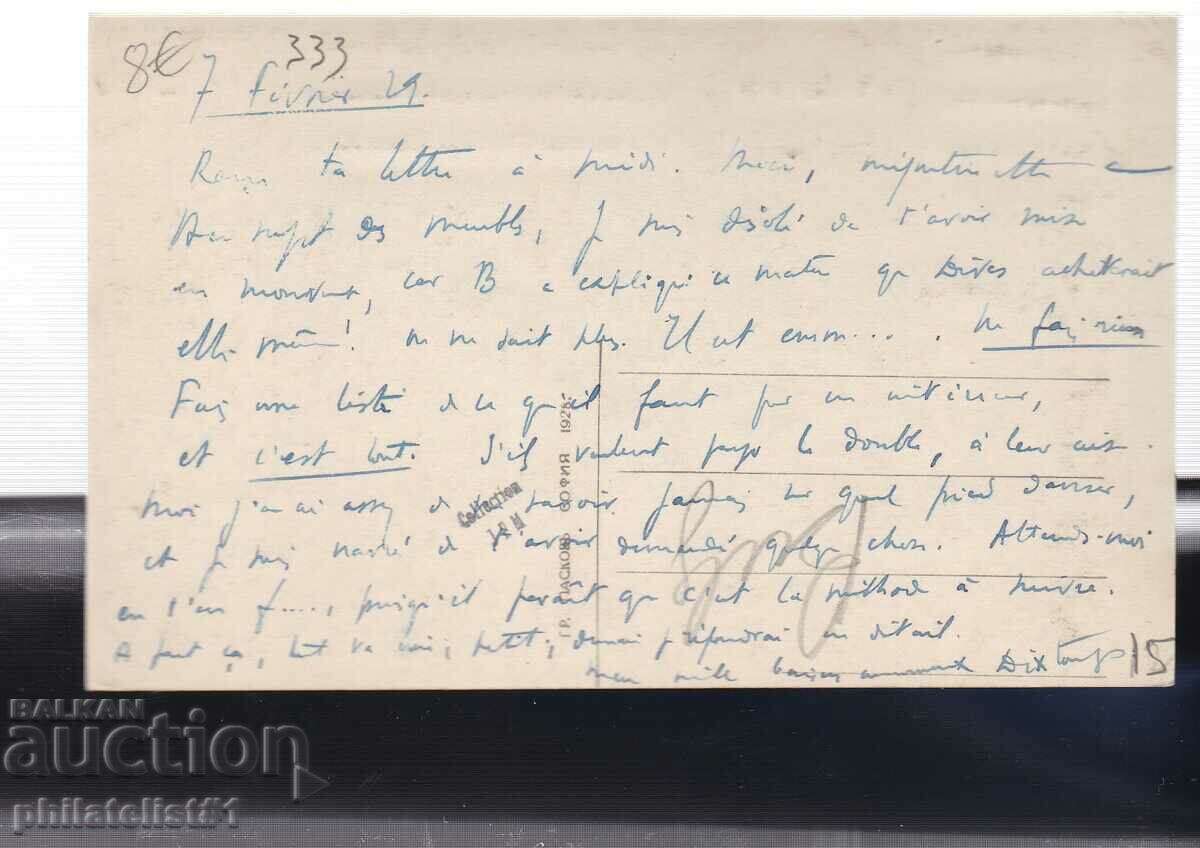 8€
333
7 Février 29.
Reçu ta lettre à midi. Merci,
des meubles, je suis désolé de t'avoir mise
en mouvement, car B a expliqué ce matin que achèterait
elle même! on ne sait plus. Il est emm.... . Ne fais rien
Fais une liste de ce qu'il faut pour un intérieur,
et c'est tout. S'ils veulent payer le double, à leur aise.
Moi j'en ai assez de ne savoir jamais sur quel pied danser,
et je suis navré de t'avoir demandé quelque chose. Attends-moi
en t'en f...., puisqu'il paraît que c'est la méthode à suivre.
A part ça, tout va bien, petit; demain je répondrai en détail.
mille baisers
15
Collection
ГР. ПАСКОВЪ СОФИЯ 1925.
BALKAN
auction
philatelist#1